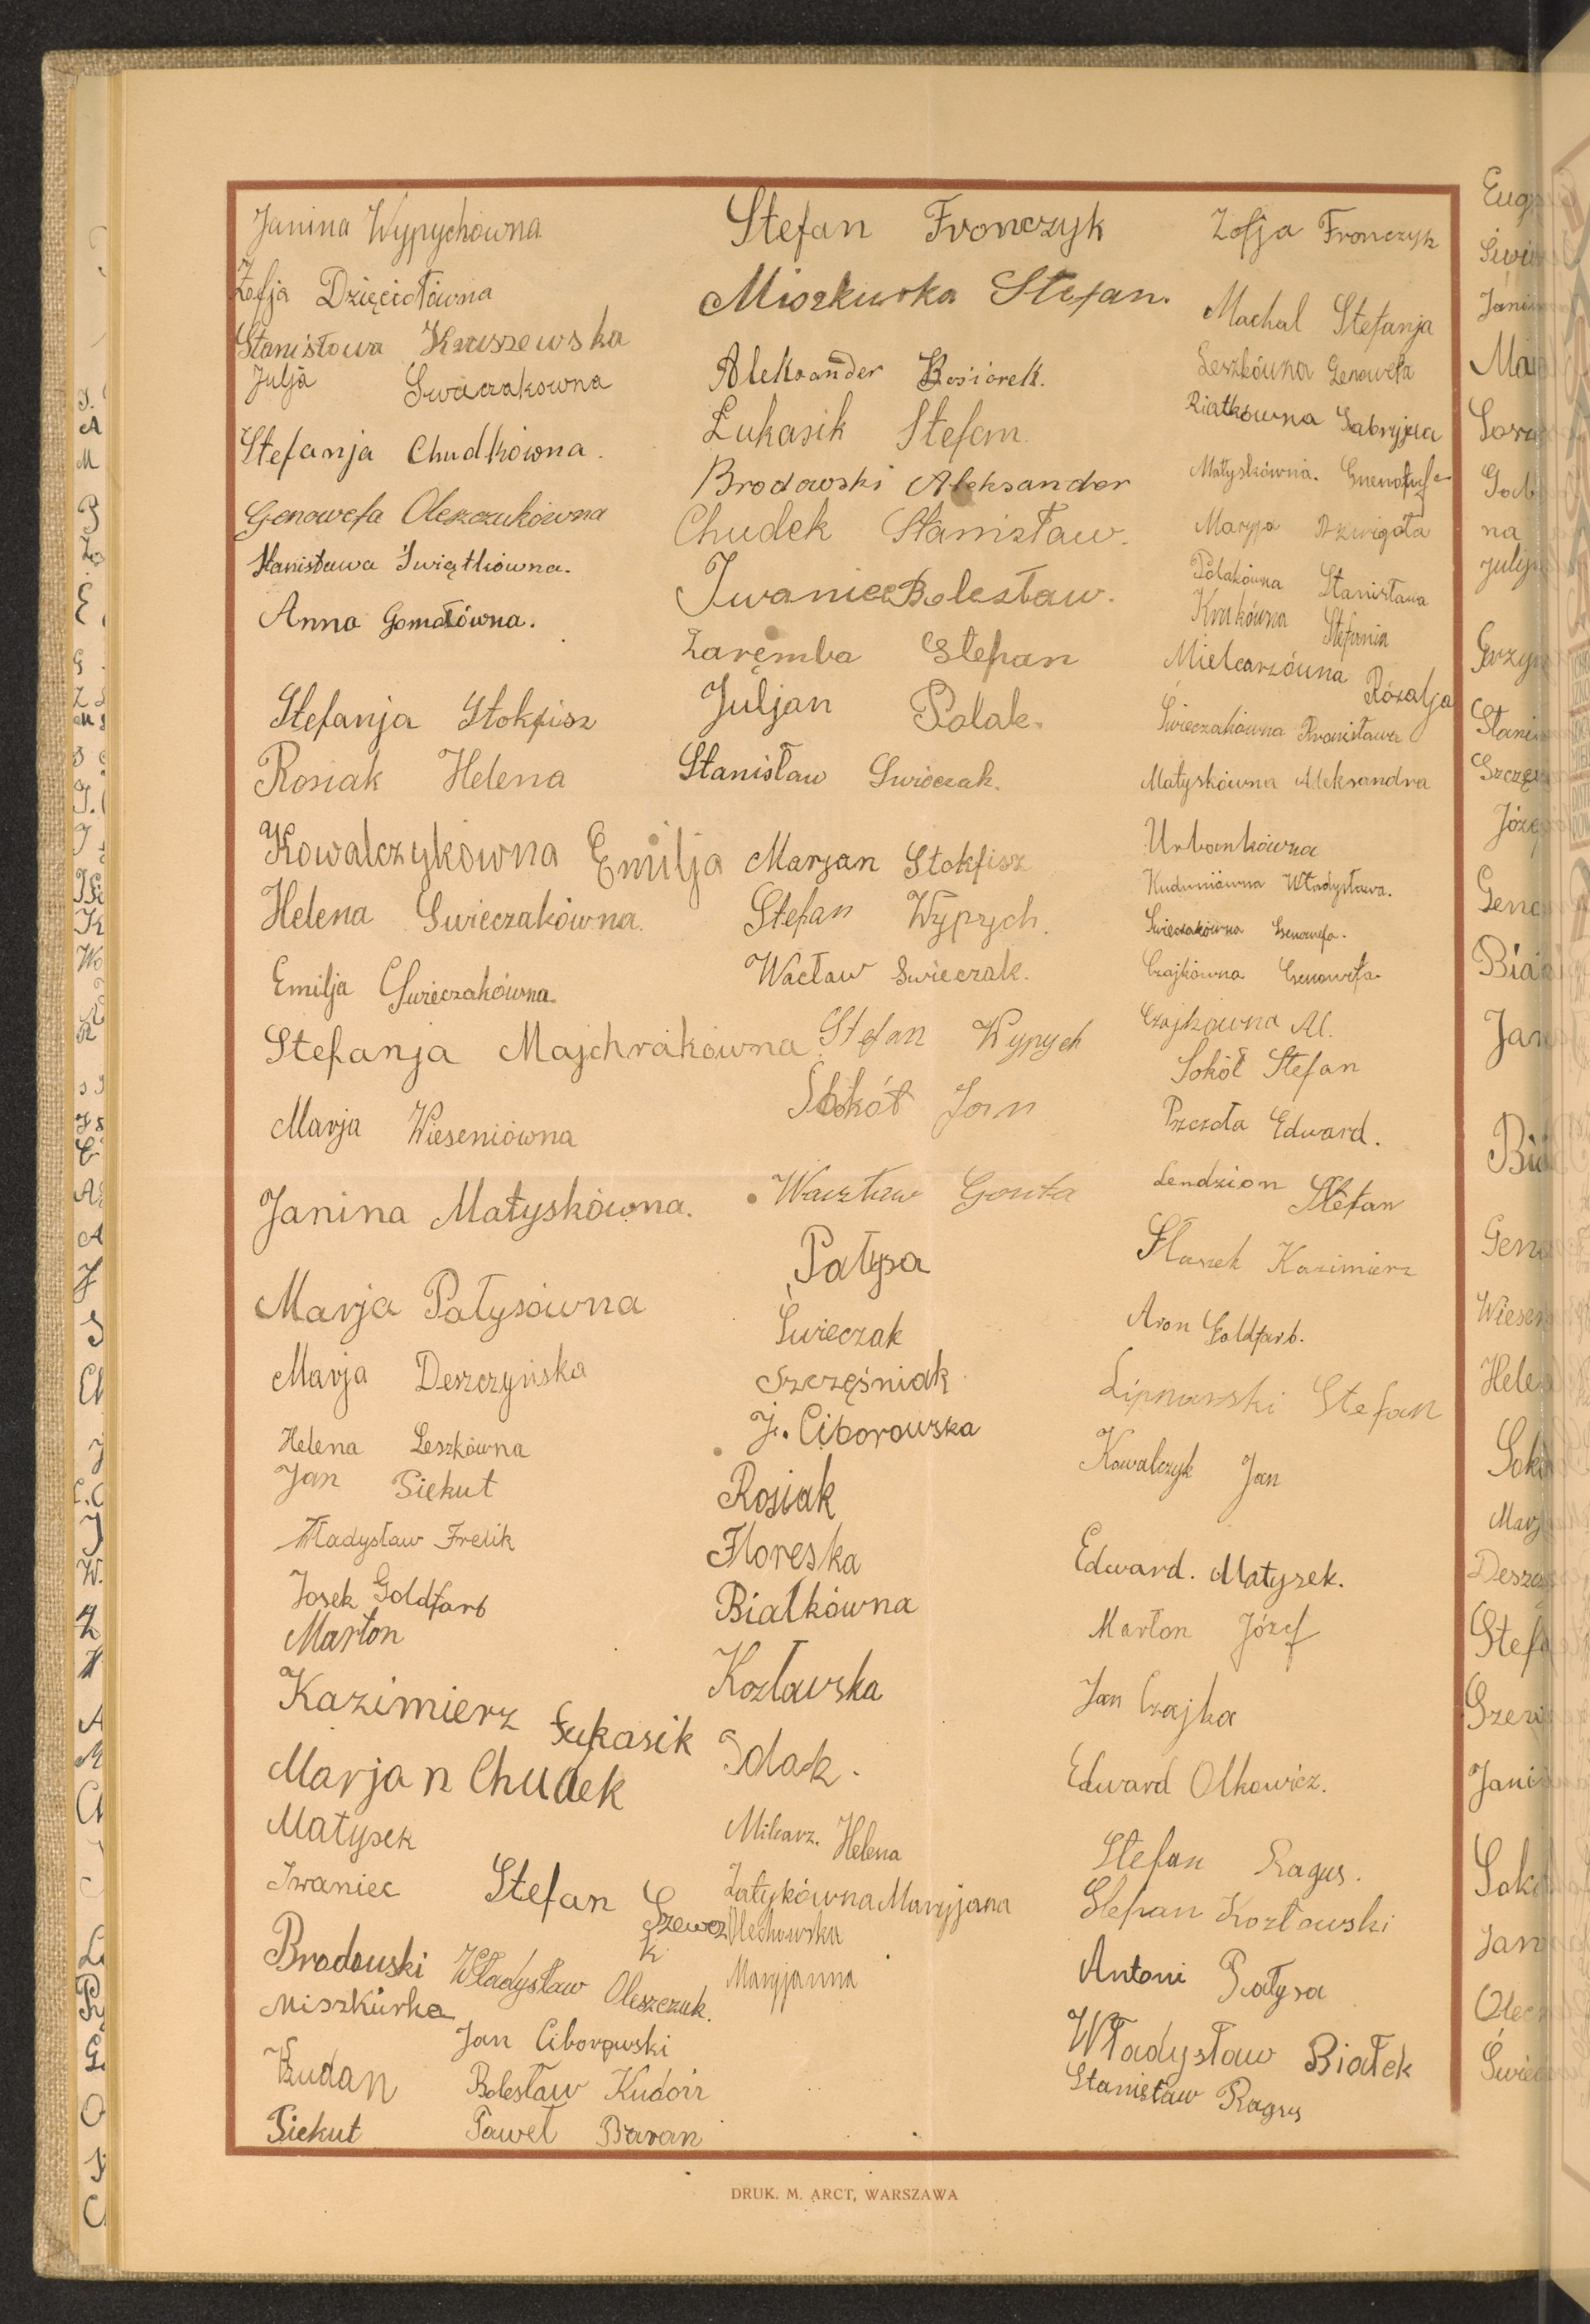 Janina Wypychówna
Zofja Dzięciołówna
Stanisława Kraszewska
Julja Swieczakowna
Stefanja Chudkówna.
Genowefa Oleszczukówna
Stanisława Świątkówna.
Anna Gomołówna.
Stefanja Stokfisz
Rosiak Helena
Kowalczykówna Emilja
Helena Swieczakówna.
Emilja Swieczakówna.
Stefanja Majchrakówna
Marja Wieseniówna
Janina Matyskówna.
Marja Pałysówna
Marja Deszczyńska
Helena Leszkówna
Jan Siekut
Władysław Frelik
Josek Goldfarb
Marton
Kazimierz Łukasik
Marjan Chudek
Matysek
Iwaniec
Stefan Szewczk
Brodowski
Władysław Oleszczuk.
Miszkurka
Jan Ciborowski
Budan
Bolesław Kudoń
Siekut
Paweł Baran
Stefan Fronczyk
Miszkurka Stefan.
Aleksander Kosiorek.
Łukasik Stefan
Brodowski Aleksander
Chudek Stanisław.
Iwaniec Bolesław.
Zaręmba Stefan
Juljan Polak.
Stanisław Swieczak.
Marjan Stokfisz
Stefan Wypych.
Wacław Swieczak.
Stefan Wypych
Sokół Jan
Wacław Gonta
Pałysa
Świeczak
Szczęśniak
J. Ciborowska
Rosiak
Floreska
Białkówna
Kozłowska
Polak.
Milcarz. Helena
Załykówna Maryjana
Olechowska
Maryjanna
Zofja Fronczyk
Machal Stefanja
Leszkówna Genowefa
Białkówna Gabryjela
Matyskówna.
Maryja Dzwigała
Polakówna Stanisława
Krukówna Stefania
Mielcarzówna Rózalja
Świeczakówna Bronisława
Matyskówna Aleksandra
Urbankówna
Kuduniówna Władysława.
Swieczakówna Genowefa.
Czajkówna Genowefa
Czajkówna Al.
Sokół Stefan
Pszczoła Edward.
Lendzion Stefan
Staszek Kazimierz
Aron Goldfarb.
Lipnarski Stefan
Kowalczyk Jan
Edward. Matysek.
Marton Józef
Jan Czajka
Edward Olkowicz.
Stefan Ragus.
Stefan Kozłowski
Antoni Pałysa
Władysław Białek
Stanisław Ragus
DRUK. M. ARCT, WARSZAWA